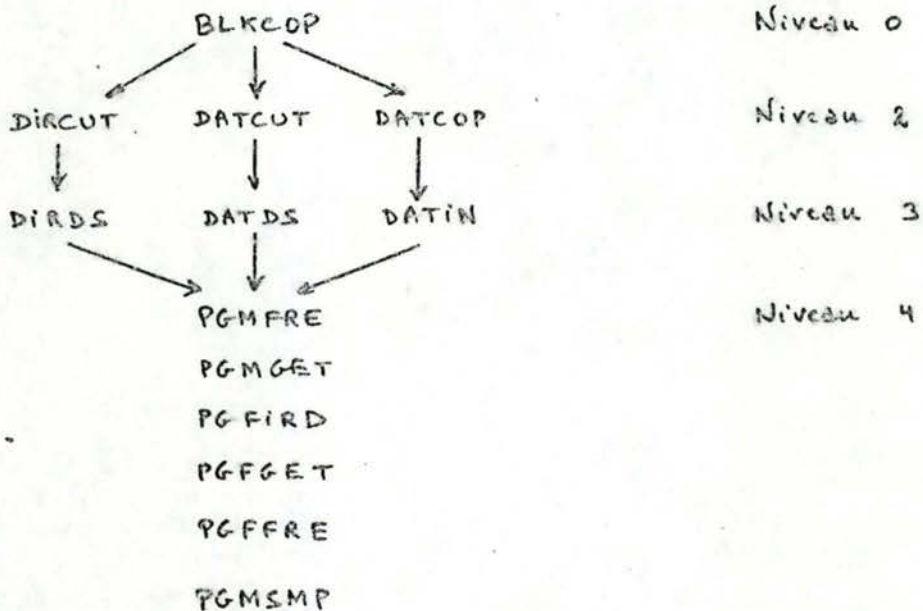 BLKCOP Niveau 0
DiRCUT DATCUT DATCOP Niveau 2
DiRDS DATDS DATiN Niveau 3
PGMFRE Niveau 4
PGMGET
PGFiRD
PGFGET
PGFFRE
PGMSMP